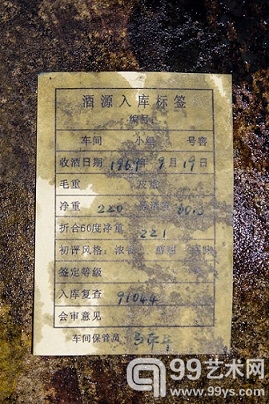 酒源入库标签
编号:
车间 小组 号窖
收酒日期 1989年9月19日
毛重 皮重
净重 220 60.3
折合60度净重 221
初评风格:浓 酱
签定等级
入库复查 91044
会审意见
车间保管员
99艺术网
www.99ys.com